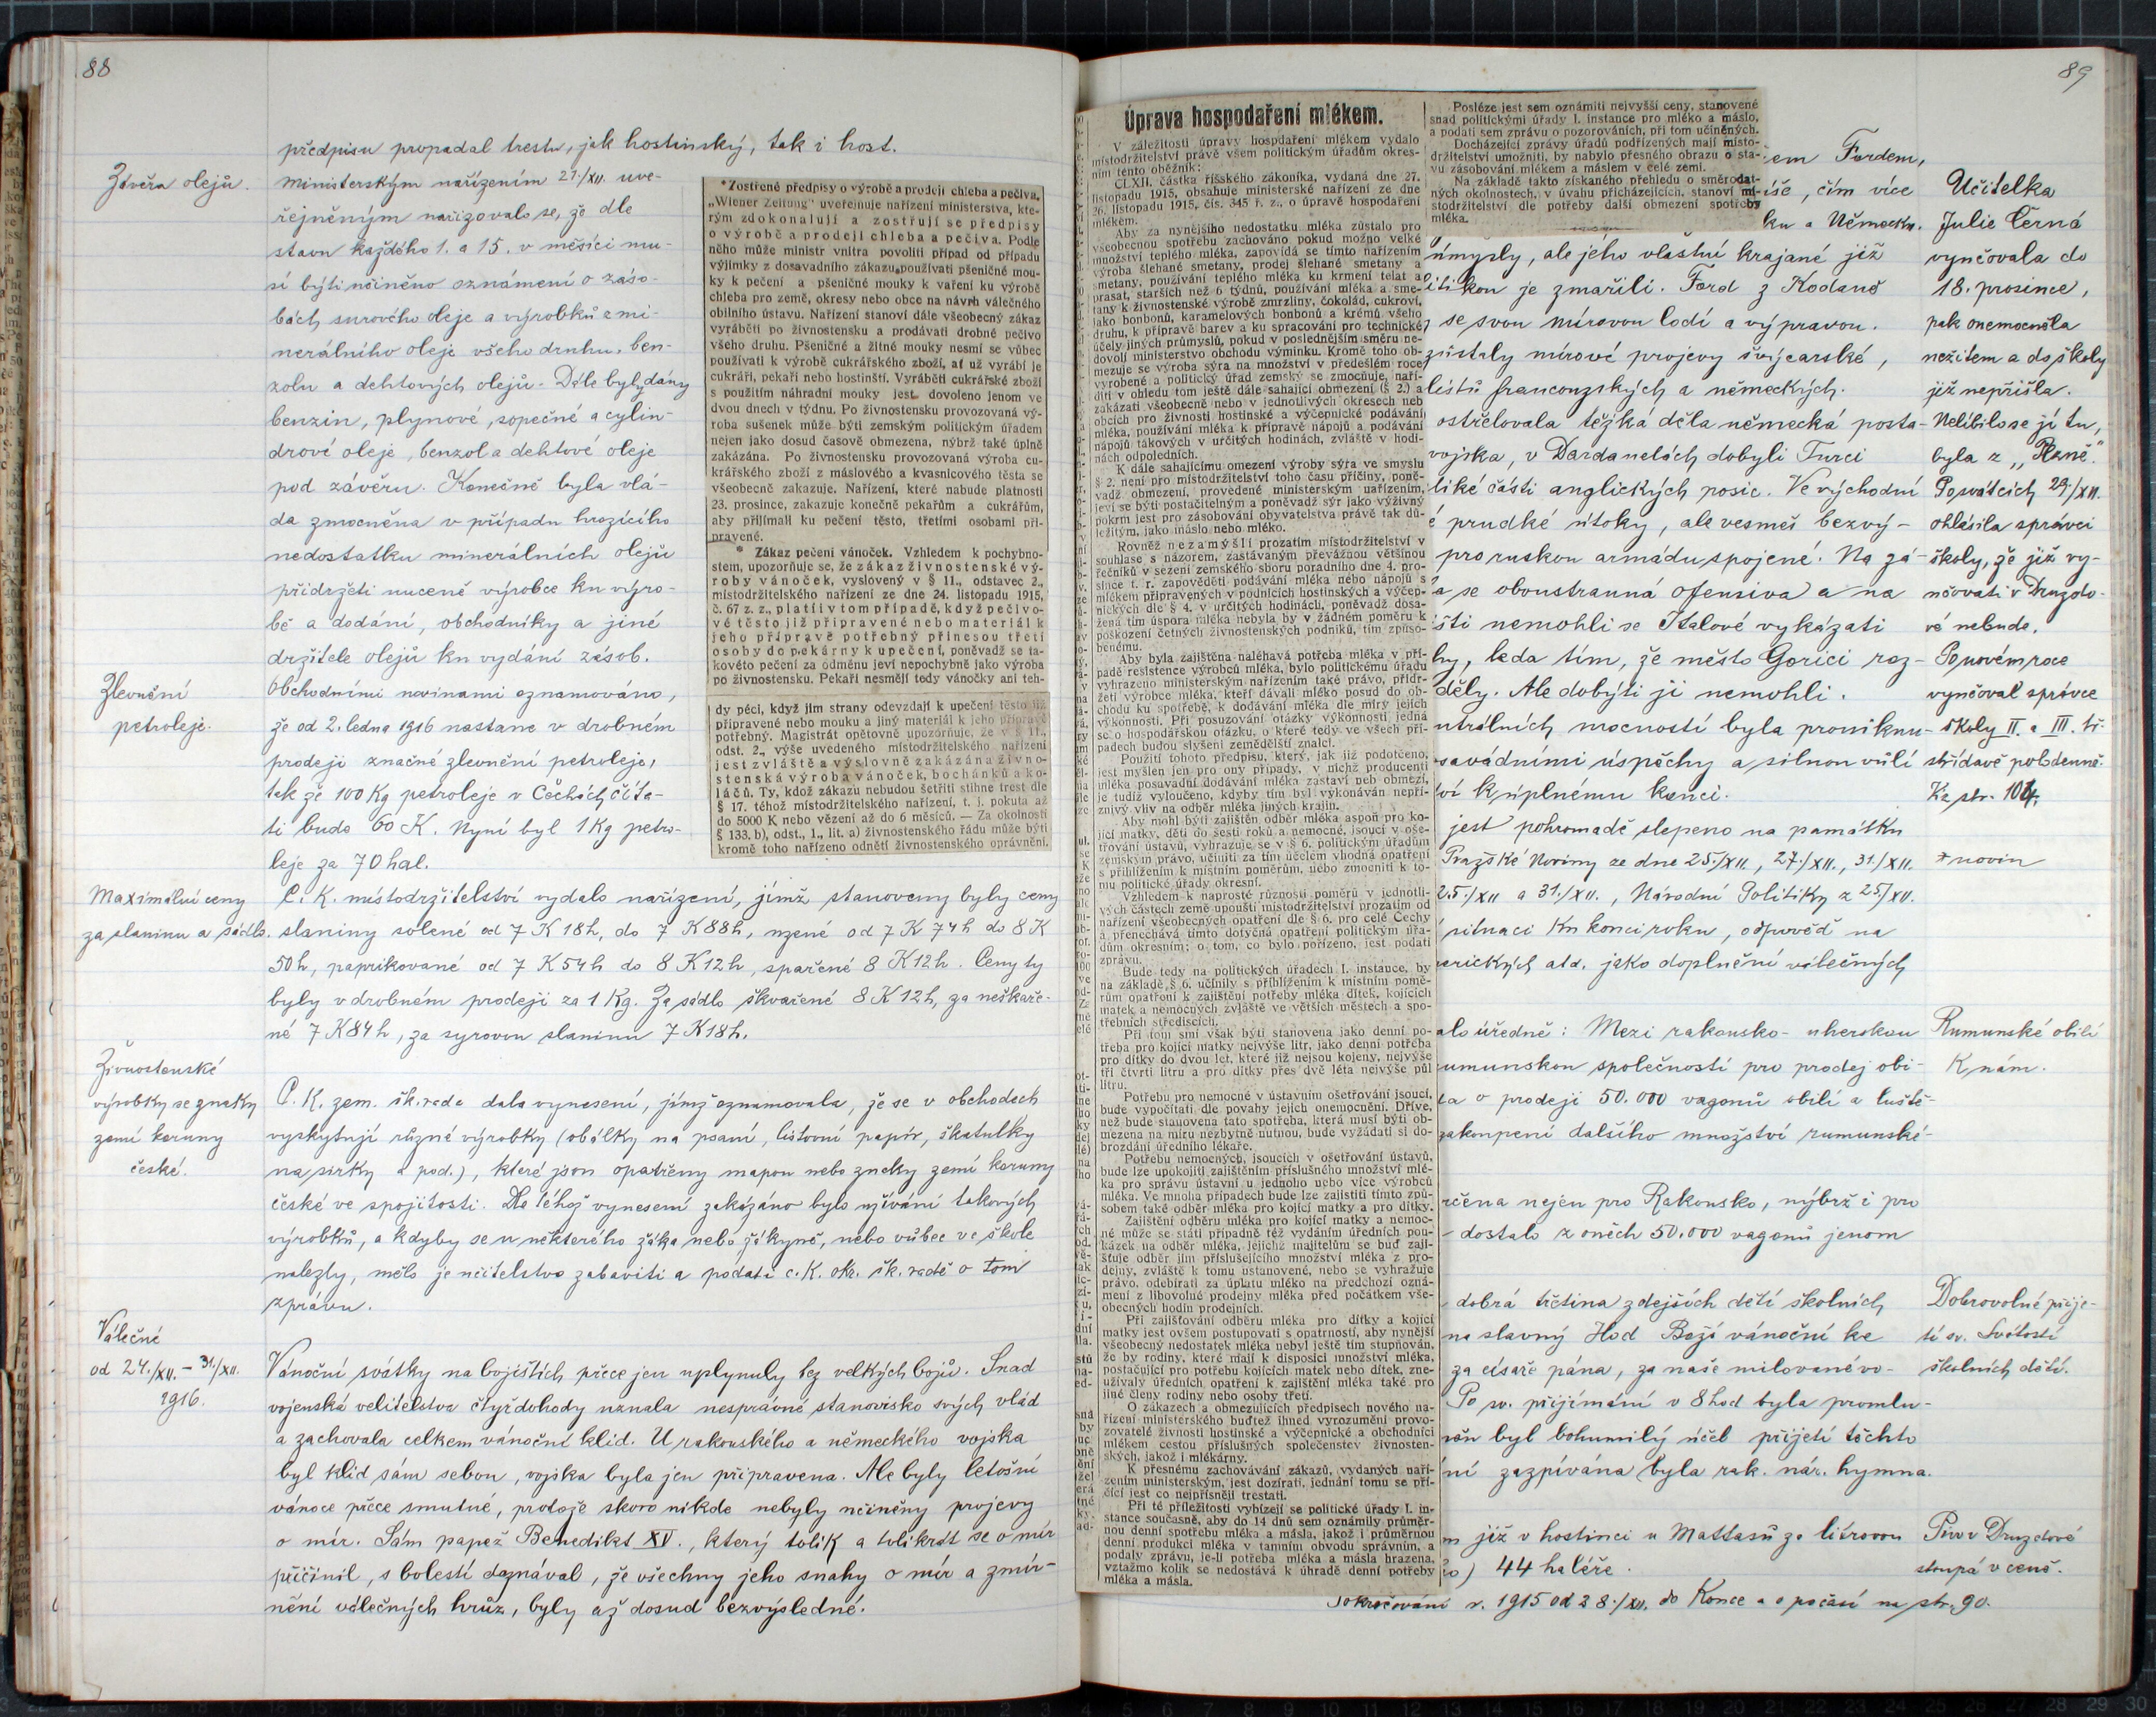 88
předpisu propadal trestu, jak hostinský, tak i host.
Závěra olejů.
Ministerským nařízením 21./XII. uve-
řejněným nařizovalo se, že dle
stavu každého 1. a 15. v měsíci mu-
sí býti učiněno oznámení o záso-
bách surového oleje a výrobků z mi-
nerálního oleje všeho druhu, ben-
zolu a dehtových olejů. Dále byly dány
benzin, plynové, sopečné a cylin-
drové oleje, benzol a dehtové oleje
pod závěru. Konečně byla vlá-
da zmocněna v případu hrozícího
nedostatku minerálních olejů
přidržeti nuceně výrobce ku výro-
bě a dodání, obchodníky a jiné
držitele olejů ku vydání zásob.
Zlevnění
petroleje.
Obchodními novinami oznamováno,
že od 2. ledna 1916 nastane v drobném
prodeji značné zlevnění petroleje,
tak že 100 Kg petroleje v Čechách číta-
ti bude 60 K. Nyní byl 1 Kg petro-
leje za 70 hal.
Maximální ceny
za slaninu a sádlo.
C. K. místodržitelství vydalo nařízení, jímž stanoveny byly ceny
slaniny solené od 7 K 18h, do 7 K 88h, uzené od 7 K 74h do 8 K
50h, paprikované od 7 K 54h do 8 K 12h, spařené 8 K 12h. Ceny ty
byly v drobném prodeji za 1 Kg. Za sádlo škvařené 8 K 12h, za neškvaře-
né 7 K 84h, za syrovou slaninu 7 K 18h.
Živnostenské
výrobky se znaky
zemí koruny
české.
C. K. zem. šk. rada dala vynesení, jímž oznamovala, že se v obchodech
vyskytují různé výrobky (obálky na psaní, listovní papír, škatulky
na sirky a pod.), které jsou opatřeny mapou nebo znaky zemí koruny
české ve spojitosti. Dle téhož vynesení zakázáno bylo užívání takových
výrobků, a kdyby se u některého žáka nebo žákyně, nebo vůbec ve škole
nalezly, mělo je učitelstvo zabaviti a podati c. K. okr. šk. radě o tom
zprávu.
Válečné
od 24./XII. – 31./XII.
1916.
Vánoční svátky na bojištích přece jen uplynuly bez velkých bojů. Snad
vojenská velitelstva čtyřdohody uznala nesprávné stanovisko svých vlád
a zachovala celkem vánoční klid. U rakouského a německého vojska
byl klid sám sebou, vojska byla jen připravena. Ale byly letošní
vánoce přece smutné, protože skoro nikde nebyly učiněny projevy
o mír. Sám papež Benedikt XV., který tolik a tolikrát se o mír
přičinil, s bolestí doznával, že všechny jeho snahy o mír a zmír-
nění válečných hrůz, byly až dosud bezvýsledné.
*Zostřené předpisy o výrobě a prodeji chleba a pečiva.
„Wiener Zeitung" uveřejňuje nařízení ministerstva, kte-
rým zdokonalují a zostřují se předpisy
o výrobě a prodeji chleba a pečiva. Podle
něho může ministr vnitra povoliti případ od případu
výjimky z dosavadního zákazu používati pšeničné mou-
ky k pečení a pšeničné mouky k vaření ku výrobě
chleba pro země, okresy nebo obce na návrh válečného
obilního ústavu. Nařízení stanoví dále všeobecný zákaz
vyráběti po živnostensku a prodávati drobné pečivo
všeho druhu. Pšeničné a žitné mouky nesmí se vůbec
používati k výrobě cukrářského zboží, ať už vyrábí je
cukráři, pekaři nebo hostinští. Vyráběti cukrářské zboží
s použitím náhradní mouky jest dovoleno jenom ve
dvou dnech v týdnu. Po živnostensku provozovaná vý-
roba sušenek může býti zemským politickým úřadem
nejen jako dosud časově obmezena, nýbrž také úplně
zakázána. Po živnostensku provozovaná výroba cu-
krářského zboží z máslového a kvasnicového těsta se
všeobecně zakazuje. Nařízení, které nabude platnosti
23. prosince, zakazuje konečně pekařům a cukrářům,
aby přijímali ku pečení těsto, třetími osobami při-
pravené.
* Zákaz pečení vánoček. Vzhledem k pochybno-
stem, upozorňuje se, že zákaz živnostenské vý-
roby vánoček, vyslovený v § 11., odstavec 2.,
místodržitelského nařízení ze dne 24. listopadu 1915,
č. 67 z. z., platí i v tom případě, když pečivo-
vé těsto již připravené nebo materiál k
jeho přípravě potřebný přinesou třetí
osoby do pekárny k upečení, poněvadž se ta-
kovéto pečení za odměnu jeví nepochybně jako výroba
po živnostensku. Pekaři nesmějí tedy vánočky ani teh-
dy péci, když jim strany odevzdají k upečení těsto již
připravené nebo mouku a jiný materiál k jeho přípravě
potřebný. Magistrát opětovně upozorňuje, že v § 11.,
odst. 2., výše uvedeného místodržitelského nařízení
jest zvláště a výslovně zakázána živno-
stenská výroba vánoček, bochánků a ko-
láčů. Ty, kdož zákazu nebudou šetřiti stihne trest dle
§ 17. téhož místodržitelského nařízení, t. j. pokuta až
do 5000 K nebo vězení až do 6 měsíců. — Za okolností
§ 133. b), odst., 1., lit. a) živnostenského řádu může býti
kromě toho nařízeno odnětí živnostenského oprávnění.
89
Úprava hospodaření mlékem.
V záležitosti úpravy hospodaření mlékem vydalo
místodržitelství právě všem politickým úřadům okres-
ním tento oběžník:
CLXII. částka říšského zákoníka, vydaná dne 27.
listopadu 1915, obsahuje ministerské nařízení ze dne
26. listopadu 1915, čís. 345 ř. z., o úpravě hospodaření
mlékem.
Aby za nynějšího nedostatku mléka zůstalo pro
všeobecnou spotřebu zachováno pokud možno velké
množství teplého mléka, zapovídá se tímto nařízením
výroba šlehané smetany, prodej šlehané smetany a
smetany, používání teplého mléka ku krmení telat a
prasat, starších než 6 týdnů, používání mléka a sme-
tany k živnostenské výrobě zmrzliny, čokolád, cukroví,
jako bonbonů, karamelových bonbonů a krémů všeho
druhu, k přípravě barev a ku spracování pro technické
účely jiných průmyslů, pokud v posledním směru ne-
dovolí ministerstvo obchodu výminku. Kromě toho ob-
mezuje se výroba sýra na množství v předešlém roce
vyrobené a politický úřad zemský se zmocňuje, naří-
diti v ohledu tom ještě dále sahající obmezení (§ 2.) a
zakázati všeobecně nebo v jednotlivých okresech neb
obcích pro živnosti hostinské a výčepnické podávání
mléka, používání mléka k přípravě nápojů a podávání
nápojů takových v určitých hodinách, zvláště v hodi-
nách odpoledních.
K dále sahajícímu omezení výroby sýra ve smyslu
§ 2. není pro místodržitelství toho času příčiny, poně-
vadž obmezení, provedené ministerským nařízením,
jeví se býti postačitelným a poněvadž sýr jako výživný
pokrm jest pro zásobování obyvatelstva právě tak dů-
ležitým, jako máslo nebo mléko.
Rovněž nezamýšlí prozatím místodržitelství v
souhlase s názorem, zastávaným převážnou většinou
řečníků v sezení zemského sboru poradního dne 4. pro-
since t. r. zapověděti podávání mléka nebo nápojů s
mlékem připravených v podnicích hostinských a výčep-
nických dle § 4. v určitých hodinách, poněvadž dosa-
žená tím úspora mléka nebyla by v žádném poměru k
poškození četných živnostenských podniků, tím způso-
benému.
Aby byla zajištěna naléhavá potřeba mléka v pří-
padě resistence výrobců mléka, bylo politickému úřadu
vyhrazeno ministerským nařízením také právo, přidr-
žeti výrobce mléka, kteří dávali mléko posud do ob-
chodu ku spotřebě, k dodávání mléka dle míry jejich
výkonnosti. Při posuzování otázky výkonnosti jedná
se o hospodářskou otázku, o které tedy ve všech pří-
padech budou slyšeni zemědělští znalci.
Použití tohoto předpisu, který, jak již podotčeno,
jest myšlen jen pro ony případy, v nichž producenti
mléka posavadní dodávání mléka zastaví neb obmezí,
je tudíž vyloučeno, kdyby tím byl vykonáván nepří-
znivý vliv na odběr mléka jiných krajin.
Aby mohl býti zajištěn odběr mléka aspoň pro ko-
jící matky, děti do šesti roků a nemocné, jsoucí v oše-
třování ústavů, vyhrazuje se v § 6. politickým úřadům
zemským právo, učiniti za tím účelem vhodná opatření
s přihlížením k místním poměrům, nebo zmocniti k to-
mu politické úřady okresní.
Vzhledem k naprosté různosti poměrů v jednotli-
vých částech země upouští místodržitelství prozatím od
nařízení všeobecných opatření dle § 6. pro celé Čechy
a přenechává tímto dotyčná opatření politickým úřa-
dům okresním; o tom, co bylo pořízeno, jest podati
zprávu.
Bude tedy na politických úřadech I. instance, by
na základě § 6. učinily s přihlížením k místním pomě-
rům opatření k zajištění potřeby mléka dítek, kojících
matek a nemocných, zvláště ve větších městech a spo-
třebních střediscích.
Při tom smí však býti stanovena jako denní po-
třeba pro kojící matky nejvýše litr, jako denní potřeba
pro dítky do dvou let, které již nejsou kojeny, nejvýše
tři čtvrti litru a pro dítky přes dvě léta nejvýše půl
litru.
Potřebu pro nemocné v ústavním ošetřování jsoucí,
bude vypočítati dle povahy jejich onemocnění. Dříve,
než bude stanovena tato spotřeba, která musí býti ob-
mezena na míru nezbytně nutnou, bude vyžádati si do-
brozdání úředního lékaře.
Potřebu nemocných, jsoucích v ošetřování ústavů,
bude lze upokojiti zajištěním příslušného množství mlé-
ka pro správu ústavní u jednoho nebo více výrobců
mléka. Ve mnoha případech bude lze zajistiti tímto způ-
sobem také odběr mléka pro kojící matky a pro dítky.
Zajištění odběru mléka pro kojící matky a nemoc-
né může se státi případně též vydáním úředních pou-
kázek na odběr mléka, jejichž majitelům se buď zaji-
šťuje odběr jim příslušejícího množství mléka z pro-
dejny, zvláště k tomu ustanovené, nebo se vyhražuje
právo, odebírati za úplatu mléko na předchozí ozná-
mení z libovolné prodejny mléka před počátkem vše-
obecných hodin prodejních.
Při zajišťování odběru mléka pro dítky a kojící
matky jest ovšem postupovati s opatrností, aby nynější
všeobecný nedostatek mléka nebyl ještě tím stupňován,
že by rodiny, které mají k disposici množství mléka,
postačující pro potřebu kojících matek nebo dítek, zne-
užívaly úředních, opatření k zajištění mléka také pro
jiné členy rodiny nebo osoby třetí.
O zákazech a obmezujících předpisech nového na-
řízení ministerského buďtež ihned vyrozuměni provo-
zovatelé živností hostinské a výčepnické a obchodníci
mlékem cestou příslušných společenstev živnosten-
ských, jakož i mlékárny.
K přesnému zachovávání zákazů, vydaných naří-
zením ministerským, jest dozírati, jednání tomu se pří-
čící jest co nejpřísněji trestati.
Při té příležitosti vybízejí se politické úřady I. in-
stance současně, aby do 14 dnů sem oznámily průměr-
nou denní spotřebu mléka a másla, jakož i průměrnou
denní produkci mléka v tamním obvodu správním, a
podaly zprávu, je-li potřeba mléka a másla hrazena,
vztažmo kolik se nedostává k úhradě denní potřeby
mléka a másla.
Posléze jest sem oznámiti nejvyšší ceny, stanovené
snad politickými úřady I. instance pro mléko a máslo,
a podati sem zprávu o pozorováních, při tom učiněných.
Docházející zprávy úřadů podřízených mají místo-
držitelství umožniti, by nabylo přesného obrazu o sta-
vu zásobování mlékem a máslem v celé zemi.
Na základě takto získaného přehledu o směrodat-
ných okolnostech, v úvahu přicházejících, stanoví mí-
stodržitelství dle potřeby další obmezení spotřeby
mléka.
em Fordem,
íše, čím více
ku a Německu.
úmysly, ale jeho vlastní krajané již
itikou je zmařili. Ford z Kodaně
se svou mírovou lodí a výpravou.
zůstaly mírové projevy švýcarské,
listů francouzských a německých.
ostřelovala těžká děla německá posta-
vojska, v Dardanelách dobyli Turci
liké části anglických posic. Ve východní
é prudké útoky, ale vesměs bezvý-
pro ruskou armádu spojené. Na zá-
a se oboustranná ofensiva a na
išti nemohli se Italové vykázati
hy, leda tím, že město Gorici roz-
děly. Ale dobýti ji nemohli.
ntrálních mocností byla proniknu-
savádními úspěchy a silnou vůlí
tví k úplnému konci.
jest pohromadě slepeno na památku
Pražské Noviny ze dne 25./XII., 27./XII., 31./XII.
25./XII a 31./XII., Národní Politiky z 25./XII.
situaci Ku konci roku, odpověď na
merických atd. jako doplnění válečných
alo úředně: Mezi rakousko-uherskou
umunskou společností pro prodej obi-
la o prodeji 50.000 vagonů obilí a luště-
zakoupení dalšího množství rumunské-
rčena nejen pro Rakousko, nýbrž i pro
dostalo z oněch 50.000 vagonů jenom
dobrá třetina zdejších dětí školních
na slavný Hod Boží vánoční ke
za císaře pána, za naše milované vo-
Po sv. přijímání v 8 hod byla promlu-
něn byl bohumilý účel přijetí těchto
ní zazpívána byla rak. nár. hymna.
m již v hostinci u Mattasů za litrovou
o) 44 haléře.
Pokračování r. 1915 od 28./XII. do Konce a o počasí na str. 90.
Učitelka
Julie Černá
vyučovala do
18. prosince,
pak onemocněla
nežitem a do školy
již nepřišla.
Nelíbilo se jí tu,
byla z „Plzně".
Po svátcích 29./XII.
ohlásila správci
školy, že již vy-
učovati v Druzdo-
vé nebude.
Po novém roce
vyučoval správce
školy II. a III. tř.
střídavě polodenně.
Ke str. 104.
* novin
Rumunské obilí
K nám.
Dobrovolné přije-
tí sv. Svátostí
školních dětí.
Pivo v Druzdové
stoupá v ceně.